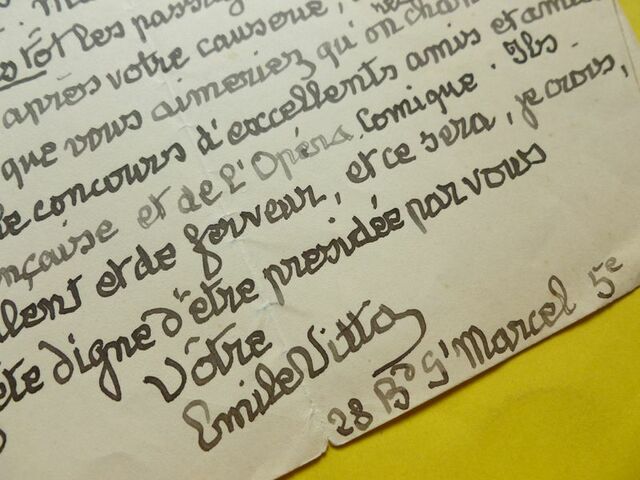 tôt les passag
après votre causerie,
que vous aimeriez qu'on chan
le concours d'excellents amis et
nçaise et de l'Opéra Comique. Ils
lent et de ferveur, et ce sera, je crois,
ête digne d'être presidée par vous
Vôtre
Emile Vitta
28 Bd St Marcel 5e